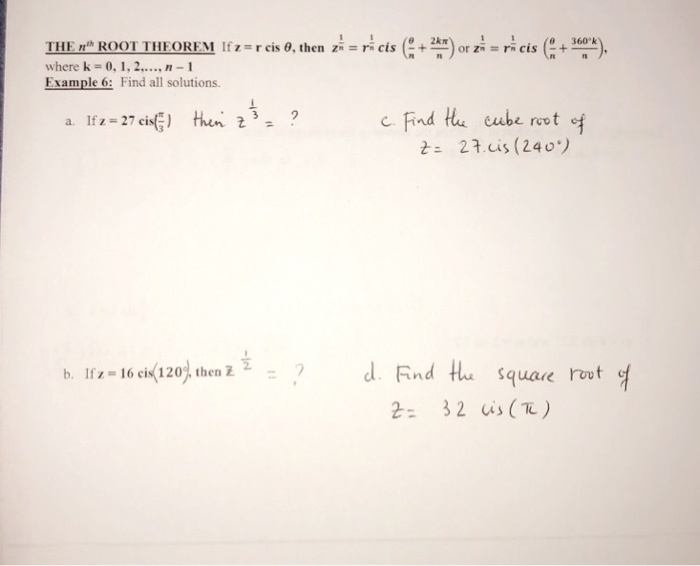 THE nᵗʰ ROOT THEOREM If z = r cis θ, then z^(1/n) = r^(1/n) cis (θ/n + 2kπ/n) or z^(1/n) = r^(1/n) cis (θ/n + 360°k/n),
where k = 0, 1, 2,..., n – 1
Example 6: Find all solutions.
a. If z = 27 cis(π/3) then z^(1/3) = ?
c. Find the cube root of
z = 27.cis(240°)
b. If z = 16 cis(120°), then z^(1/2) = ?
d. Find the square root of
z = 32 cis(π)